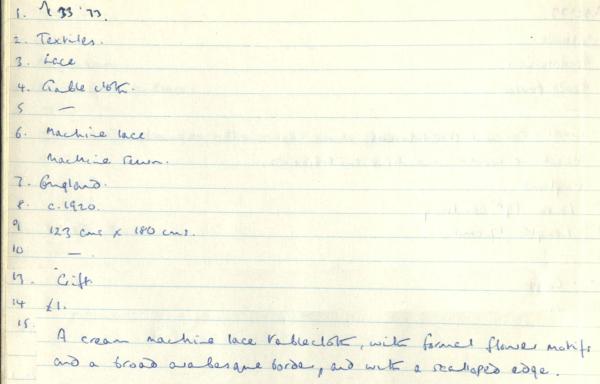 1. 33'73.
2. Textiles.
3. Lace
4. Table cloth.
5 —
6. Machine lace
Machine sewn.
7. England.
8. c.1920.
9 123 cms x 180 cms.
10 —
13. Gift
14 £1.
15. A cream machine lace tablecloth, with formal flower motifs
and a broad arabesque border, and with a scalloped edge.